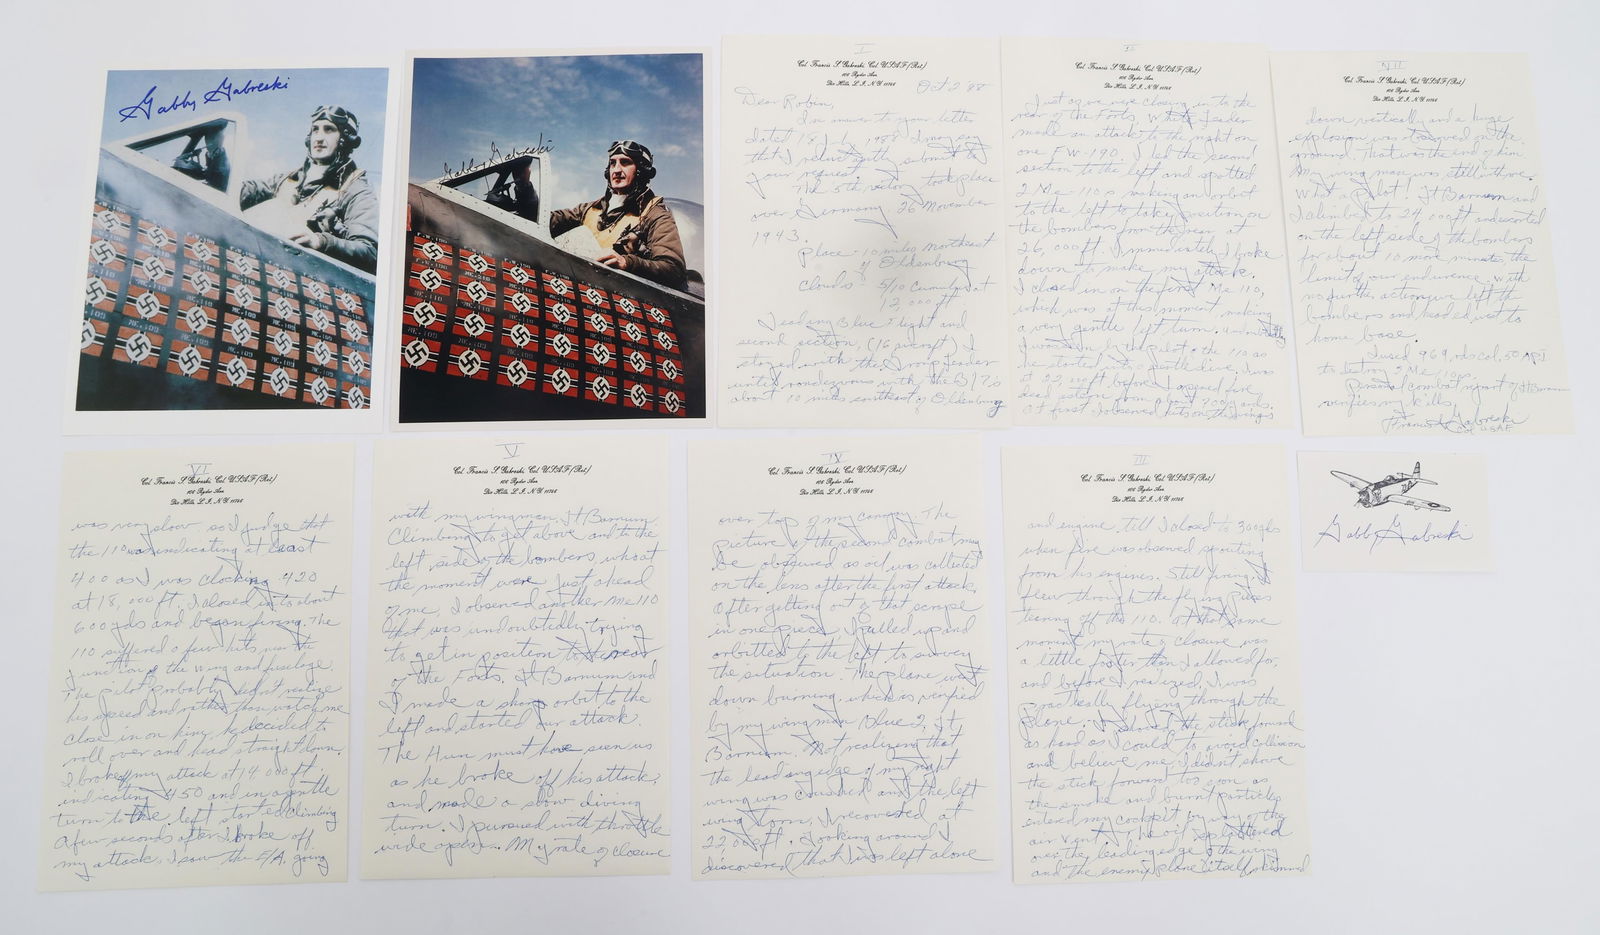 Gabby Gabreski
Gabby Gabreski
I
Col. Francis S. Gabreski, Col. USAF (Ret)
Dix Hills, L. I., N.Y. 11746
Oct 2 '88
Dear Robin,
In answer to your letter
dated 18 July 1988 I may say
that I reluctantly submit to
your request.
The 5th victory took place
over Germany 26 November
1943.
Place - 10 miles northeast
of Oldenburg
Clouds 5/10 Cumulus at
12,000 ft
Leading Blue Flight and
second section, (16 aircraft) I
stayed with the Group Leader
until rendezvous with the B17s
about 10 miles southeast of Oldenburg
II
Col. Francis S. Gabreski, Col. USAF (Ret)
Dix Hills, L. I., N.Y. 11746
Just as we were closing in to the
rear of the Forts, White Leader
made an attack to the right on
one FW-190. I led the second
section to the left and spotted
2 Me-110s making an orbit
to the left to take position on
the bombers from the rear at
26,000 ft. Immediately I broke
down to make my attack.
I closed in on the first Me 110,
which was at this moment making
a very gentle left turn.
the pilot of the 110 as
he started into a gentle dive. I was
at 22,000 ft. before I opened fire
dead astern from about 700 yards.
At first, I observed hits on the wings
III
Col. Francis S. Gabreski, Col. USAF (Ret)
Dix Hills, L. I., N.Y. 11746
and engine, till I closed to 300 yds
when fire was observed spouting
from his engines. Still firing, I
flew through the flying pieces
tearing off the 110. At that same
moment my rate of closure was
a little faster than I allowed for,
and before I realized, I was
practically flying through the
plane. I shoved the stick forward
as hard as I could to avoid collision
and believe me, I didn't shove
the stick forward too soon as
the smoke and burnt particles
entered my cockpit by way of the
air vent. The oil splattered
over the leading edge of the wing
and the enemy plane itself skimmed
IV
Col. Francis S. Gabreski, Col. USAF (Ret)
Dix Hills, L. I., N.Y. 11746
over top of my canopy. The
picture of the second combat may
be obscured as oil was collected
on the lens after the first attack.
After getting out of that scrape
in one piece, I pulled up and
orbitted to the left to survey
the situation. The plane went
down burning, which is verified
by my wingman Blue 2, Lt
Barnum. Not realizing that
the leading edge of my right
wing was crushed and the left
wing torn, I recovered at
22,000 ft. Looking around I
discovered that I was left alone
V
Col. Francis S. Gabreski, Col. USAF (Ret)
Dix Hills, L. I., N.Y. 11746
with my wingman Lt Barnum.
Climbing to get above and to the
left side of the bombers, who at
the moment were just ahead
of me, I observed another Me 110
that was undoubtedly trying
to get in position to the rear
of the Forts. Lt Barnum and
I made a sharp orbit to the
left and started our attack.
The Hun must have seen us
as he broke off his attack,
and made a slow diving
turn. I pursued with throttle
wide open. My rate of closure
VI
Col. Francis S. Gabreski, Col. USAF (Ret)
Dix Hills, L. I., N.Y. 11746
was very slow so I judge that
the 110 was indicating at least
400 as I was clocking 420
at 18,000 ft. I closed in to about
600 yds and began firing. The
110 suffered a few hits near the
junction of the wing and fuselage.
The pilot probably didn't realize
his speed and rather than watch me
close in on him, he decided to
roll over and head straight down.
I broke off my attack at 14,000 ft.
indicating 450 and in a gentle
turn to the left started climbing
A few seconds after I broke off
my attack, I saw the E/A going
VII
Col. Francis S. Gabreski, Col. USAF (Ret)
Dix Hills, L. I., N.Y. 11746
down vertically and a huge
explosion was observed on the
ground. That was the end of him
My wing man was still with me.
What a pilot! Lt Barnum and
I climbed to 24,000 ft and escorted
on the left side of the bombers
for about 10 more minutes, the
limit of our endurance. With
no further action we left the
bombers and headed west to
home base.
I used 969 rds cal. 50 AP I
to destroy 2 Me 110s.
Personal combat report of Lt Barnum
verifies my kills.
Francis S Gabreski
Col USAF
Gabby Gabreski